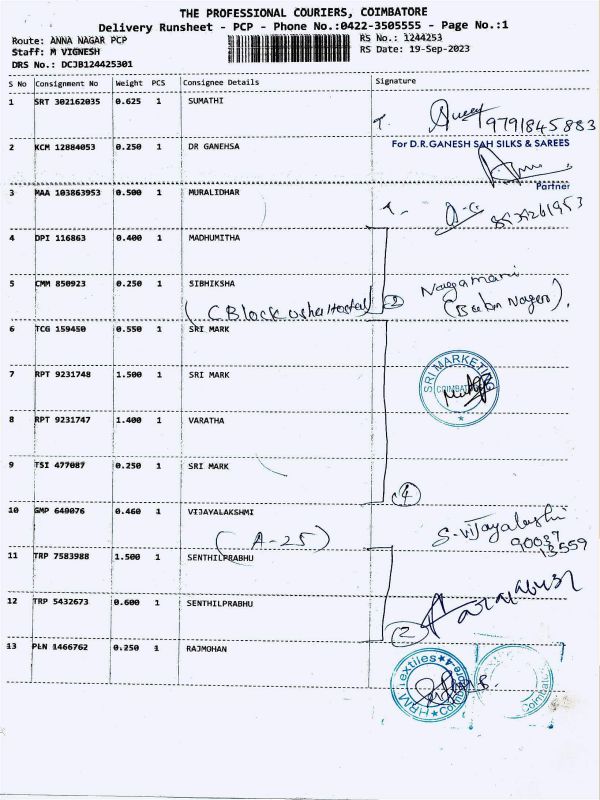 THE PROFESSIONAL COURIERS, COIMBATORE
Delivery Runsheet - PCP - Phone No.:0422-3505555 - Page No.:1
Route: ANNA NAGAR PCP RS No.: 1244253
Staff: M VIGNESH RS Date: 19-Sep-2023
DRS No.: DCJB124425301
S No Consignment No Weight PCS Consignee Details Signature
1 SRT 302162035 0.625 1 SUMATHI
9791845883
2 KCM 12884053 0.250 1 DR GANEHSA For D.R.GANESH SAH SILKS & SAREES
Partner
3 MAA 103863953 0.500 1 MURALIDHAR
4 DPI 116863 0.400 1 MADHUMITHA
5 CMM 850923 0.250 1 SIBHIKSHA Nagamani
(C Block usha Hostel) 2
6 TCG 159450 0.550 1 SRI MARK
7 RPT 9231748 1.500 1 SRI MARK SRI MARKETING
8 RPT 9231747 1.400 1 VARATHA
9 TSI 477087 0.250 1 SRI MARK
4
10 GMP 640076 0.460 1 VIJAYALAKSHMI S. Vijayalashi
(A-25) 90037
13559
11 TRP 7583988 1.500 1 SENTHILPRABHU
12 TRP 5432673 0.600 1 SENTHILPRABHU
2
13 PLN 1466762 0.250 1 RAJMOHAN HRM Textiles